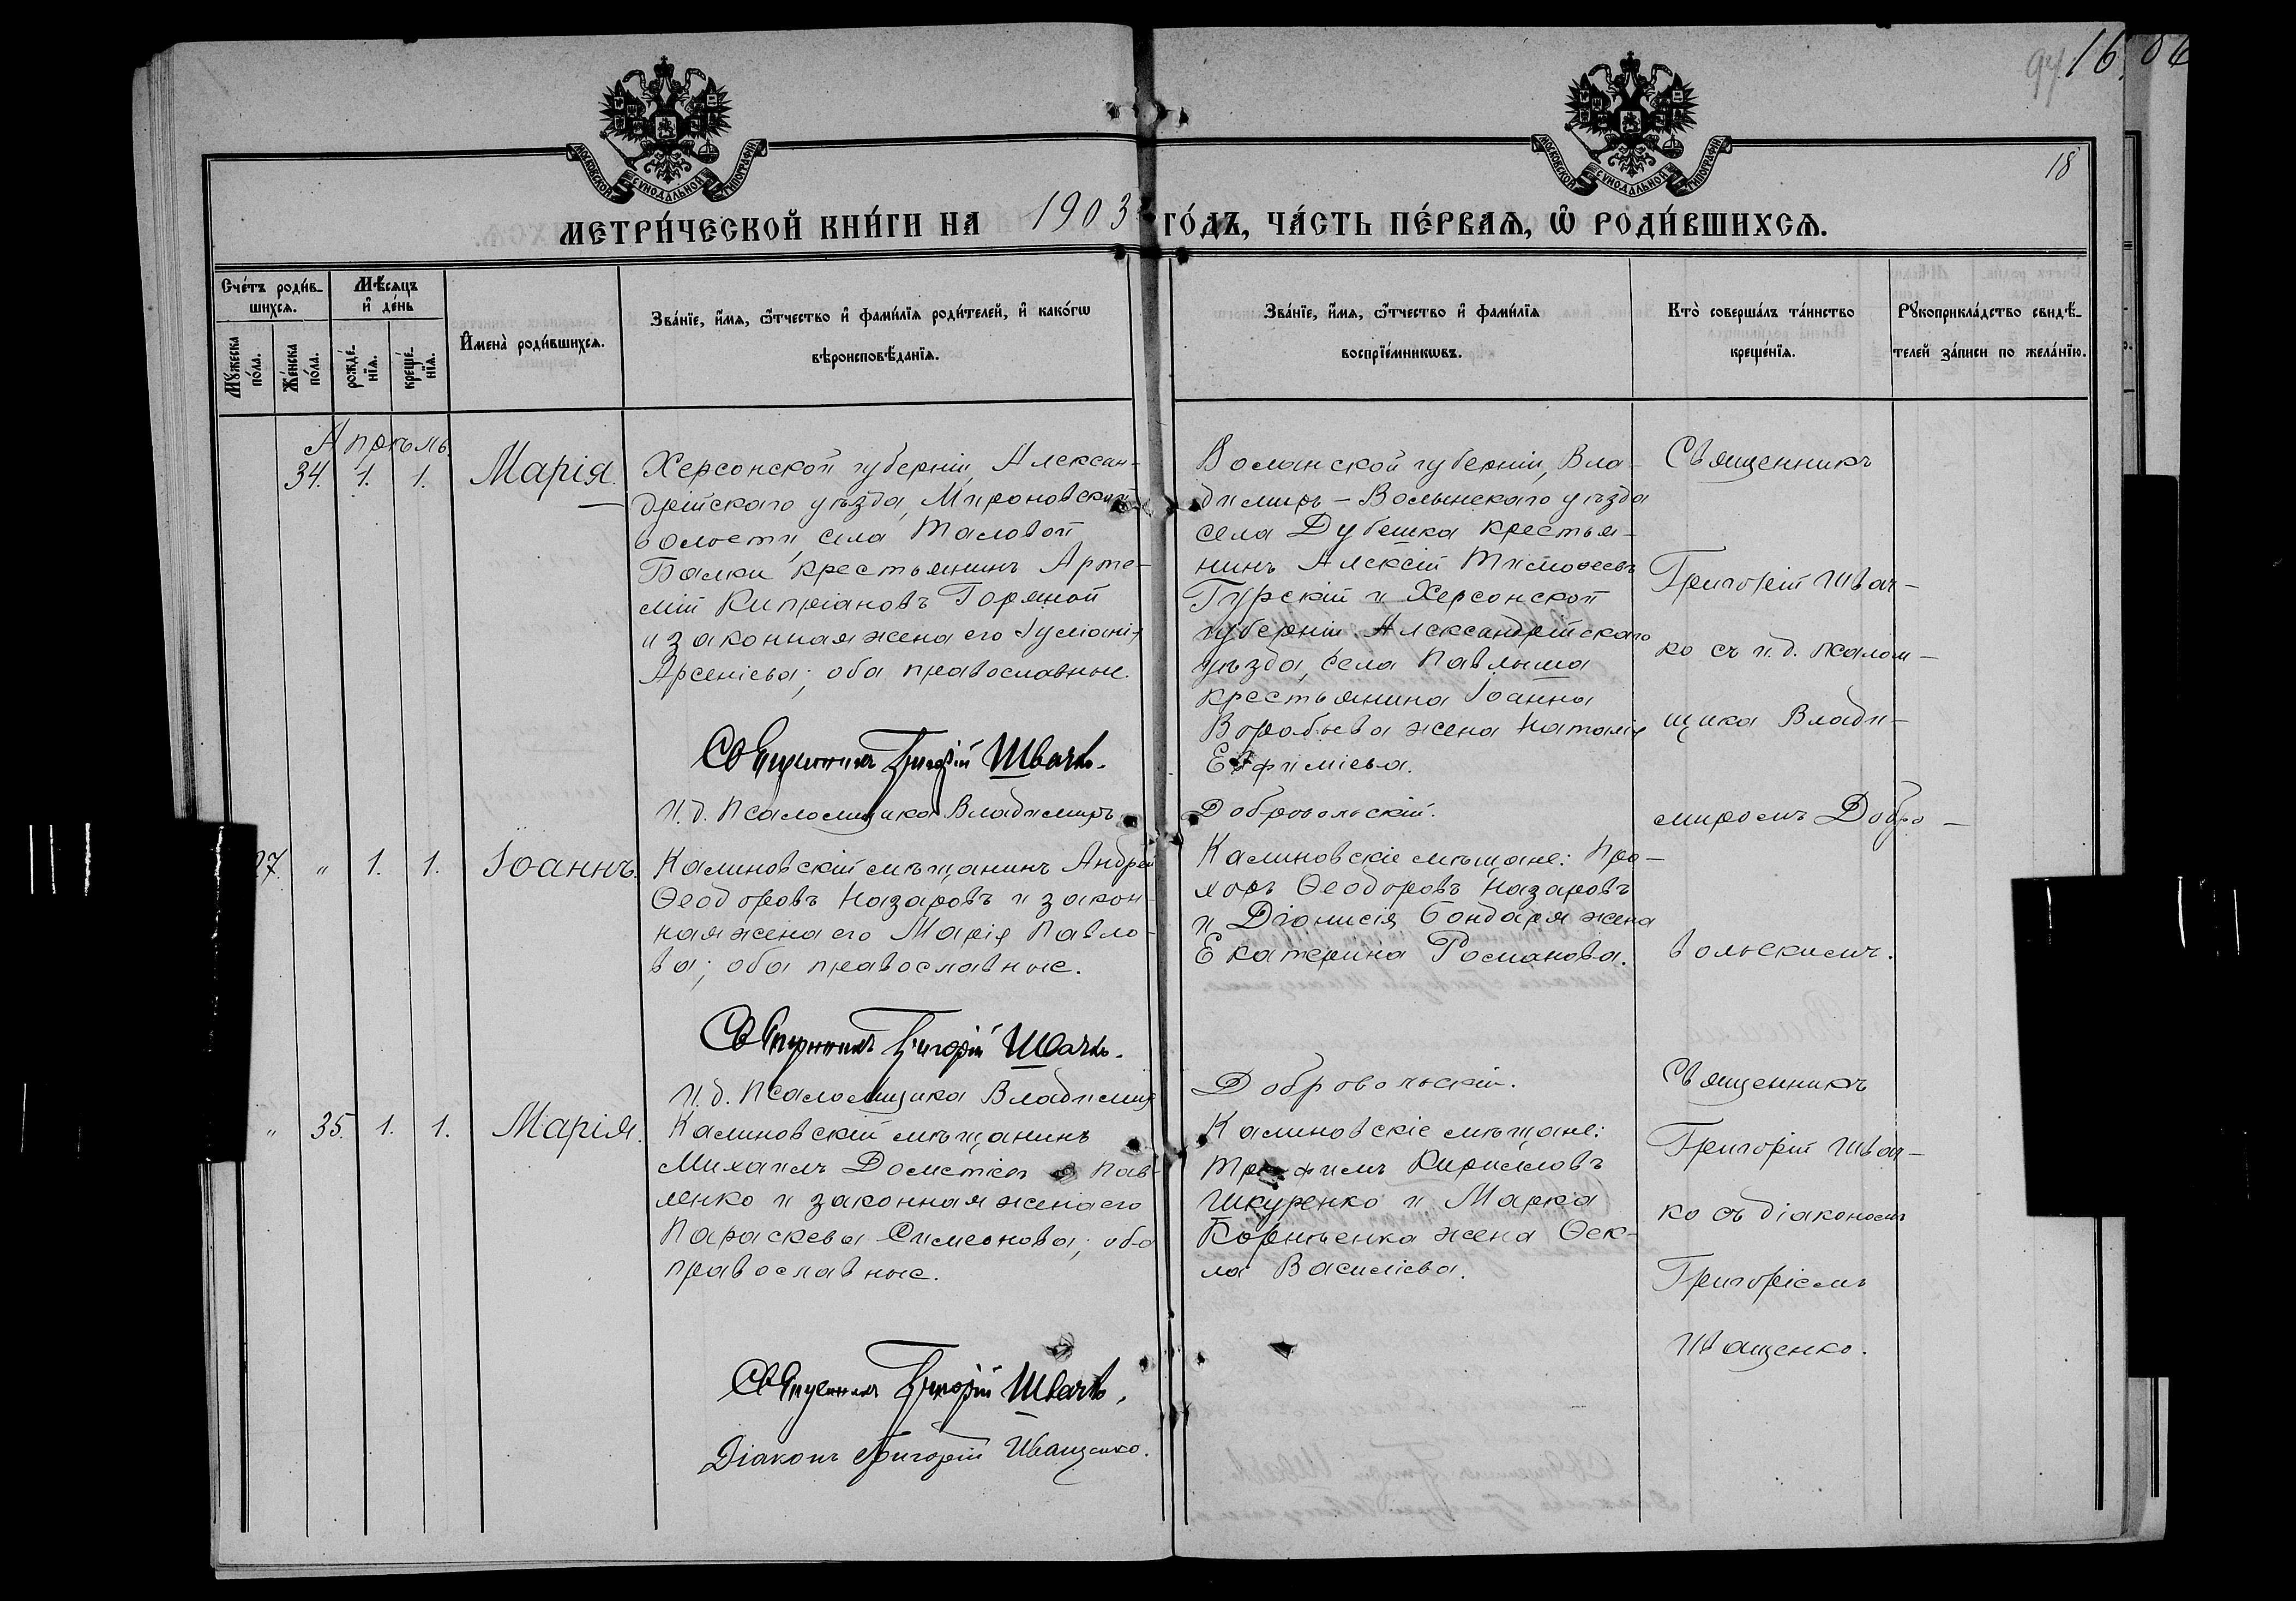 94 16. 06
18
МОСКОВСКОЙ СѴНОДАЛЬНОЙ ТИПОГРАФІИ
МОСКОВСКОЙ СѴНОДАЛЬНОЙ ТИПОГРАФІИ
МЕТРИ́ЧЕСКОЙ КНИ́ГИ НА 1903 ГО́ДЪ, ЧА́СТЬ ПЕ́РВАѦ, Ѽ РОДИ́ВШИХСѦ.
Сче́тъ роди́в-
шихсѧ.
Мꙋ́жеска по́ла.
Же́нска по́ла.
Мѣ́сяцъ и҆ де́нь
рожде́-нїѧ.
креще́-нїѧ.
И҆мена̀ роди́вшихсѧ.
Зва́нїе, и҆́мѧ, ѻ҆́тчество и҆ фами́лїѧ роди́телей, и҆ како́гѡ
вѣроисповѣ́данїѧ.
Зва́нїе, и҆́мѧ, ѻ҆́тчество и҆ фами́лїѧ
воспрїе́мникѡвъ.
Кто̀ соверша́лъ та́инство
креще́нїѧ.
Рꙋкоприкла́дство свидѣ́-
телей за́писи по жела́нїю.
Апрѣль.
34. 1. 1. Марія.
Херсонской губерніи, Алексан-
дрійскаго уѣзда, Мироновской
волости, села Таловой
Балки крестьянинъ Арте-
мій Кипріановъ Горяной
и законная жена его Іуліанія
Арсеніева; оба православные.
Священникъ Григорій Швачко.
И. д. Псаломщика Владимиръ Добровольскій.
Волынской губерніи, Вла-
димиръ-Волынскаго уѣзда
села Дубешка крестья-
нинъ Алексій Тимофеевъ
Гурскій и Херсонской
губерніи, Александрійскаго
уѣзда, села Павлыша
крестьянина Іоанна
Воробьева жена Наталія
Евфиміева.
Священникъ
Григорій Швач-
ко съ и. д. псалом-
щика Влади-
миромъ Добро-
вольскимъ.
27. " 1. 1. Іоаннъ.
Калиновскій мѣщанинъ Андрей
Ѳеодоровъ Назаровъ и закон-
ная жена его Марія Павло-
ва; оба православные.
Священникъ Григорій Швачко.
И. д. Псаломщика Владимиръ Добровольскій.
Калиновскіе мѣщане: Про-
хоръ Ѳеодоровъ Назаровъ
и Діонисія Бондаря жена
Екатерина Романова.
" 35. 1. 1. Марія.
Калиновскій мѣщанинъ
Михаилъ Дометіевъ Пав-
ленко и законная жена его
Параскева Симеонова; оба
православные.
Священникъ Григорій Швачко.
Діаконъ Григорій Иващенко.
Калиновскіе мѣщане:
Трофимъ Кирилловъ
Шкуренко и Марка
Корніенка жена Ѳек-
ла Василіева.
Священникъ
Григорій Швач-
ко съ діакономъ
Григоріемъ
Иващенко.